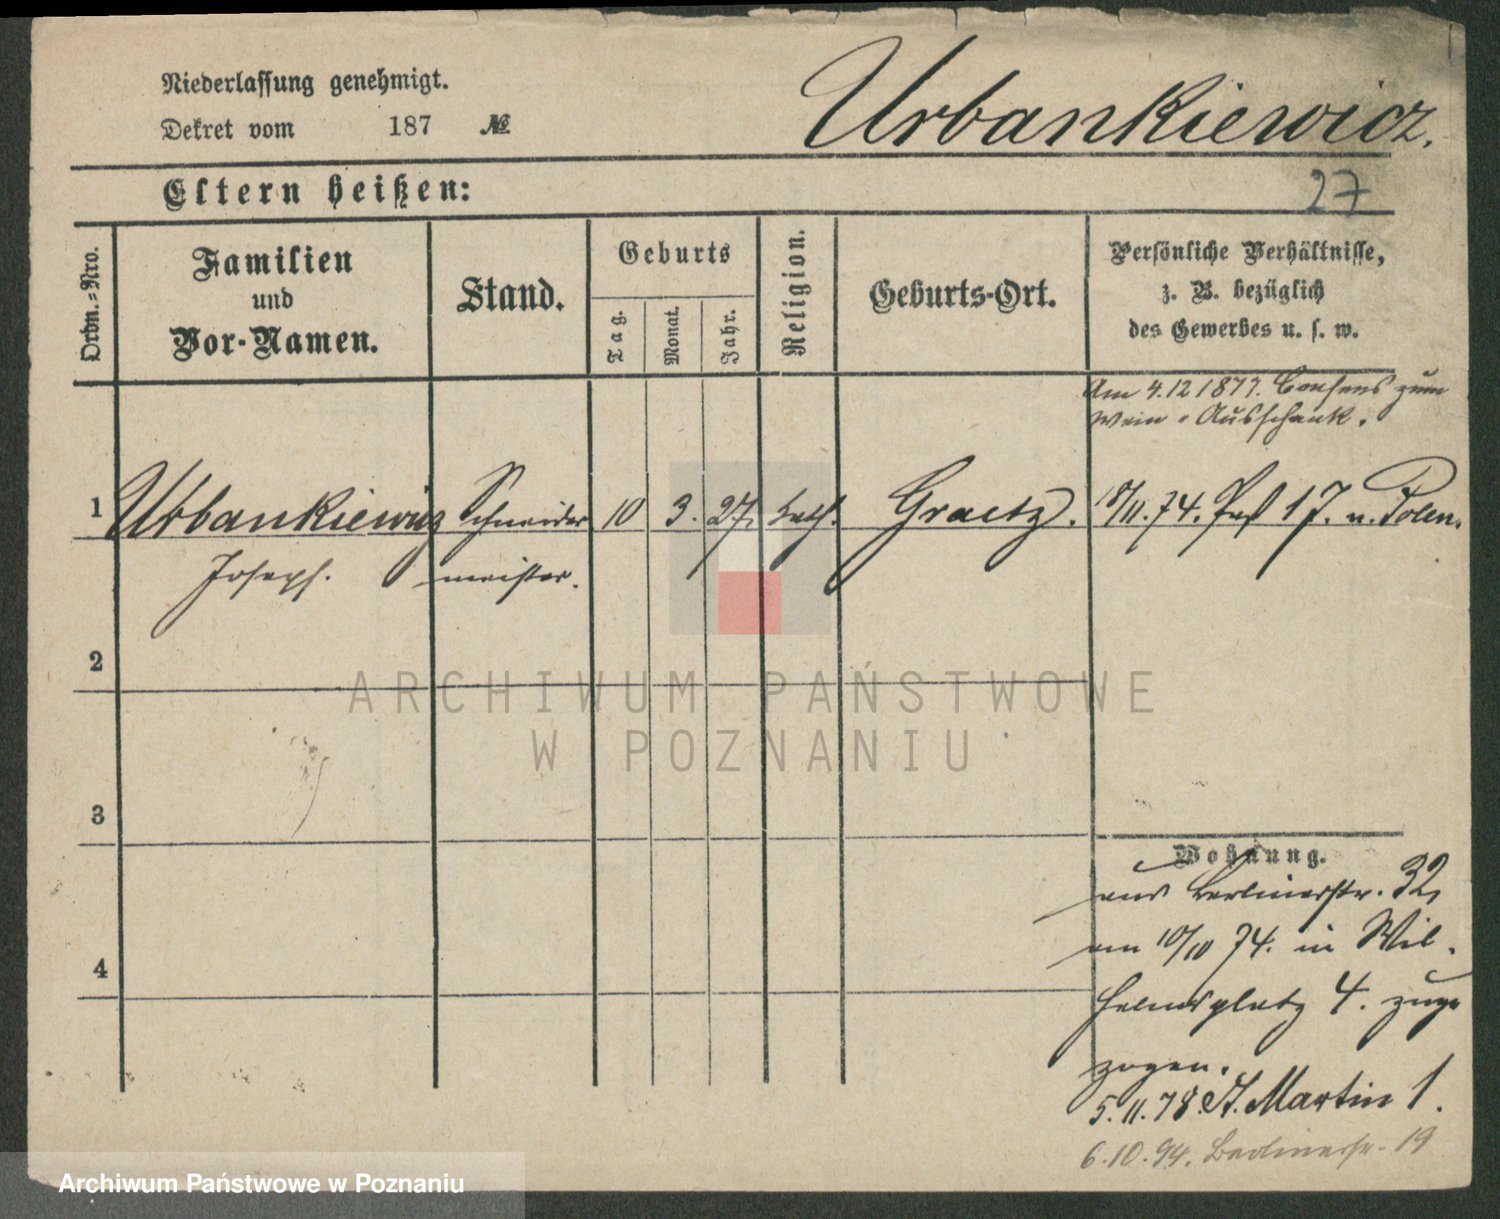 Niederlassung genehmigt.
Dekret vom 187 №
Urbankiewicz.
27
Eltern heißen:
Ordn.=Nro.
Familien
und
Vor-Namen.
Stand.
Geburts
Tag.
Monat.
Jahr.
Religion.
Geburts-Ort.
Persönliche Verhältnisse,
z. B. bezüglich
des Gewerbes u. s. w.
Am 4.12 1877. Consens zum
Wein-Ausschank.
1 Urbankiewicz Schneider 10 3. 27. kath. Graetz. 18/11. 74. Paß 1 J. n. Polen.
Joseph. meister.
2
3
4
Wohnung.
aus Berlinerstr. 32,
am 10/10 74. in Wil-
helmsplatz 4. zuge
zogen.
5.11.78. St. Martin 1.
6.10.94. Berlinerstr. 19
ARCHIWUM PAŃSTWOWE
W POZNANIU
Archiwum Państwowe w Poznaniu